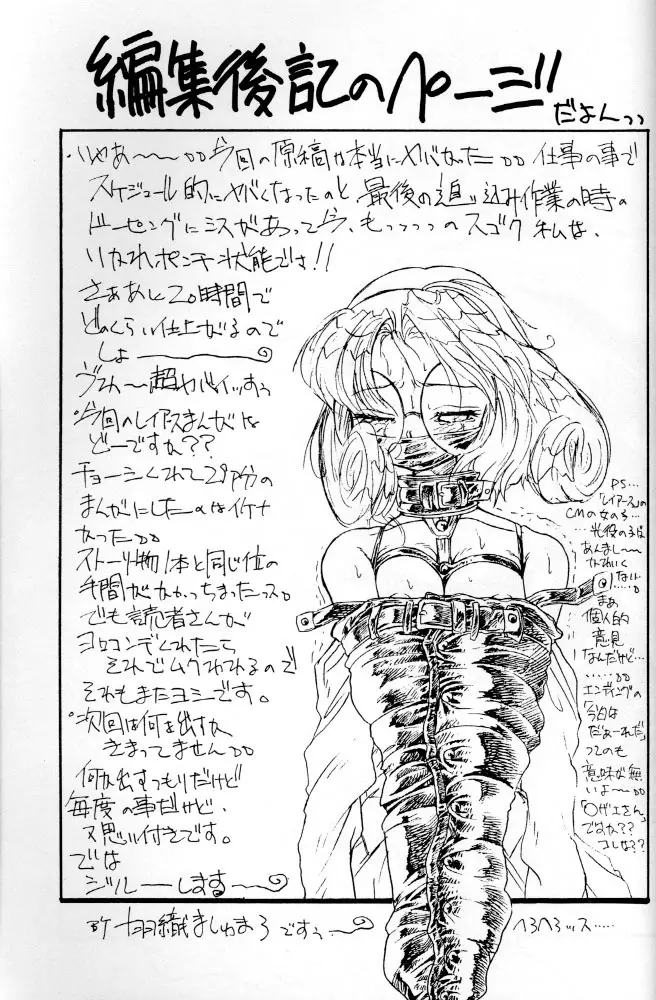 編集後記のページ
だよんっっ
・いやあ〜〜〜〇〇今回の原稿は本当にヤバかった〇〇仕事の事で
スケジュール的にヤバくなったのと最後の追い込み作業の時の
ドーピングにミスがあって今、もっっっっのスゴク私は、
いかれポンチ状態でさ!!
さああと20時間で
どのくらい仕上がるので
しょーーーー
ヴえ〜超ヤバイっすぅ
・今回のレイアースまんがは
どーですか??
チョーシくれて29P分の
まんがにしたのはイケナ
かった〇〇
ストーリー物1本と同じ位の
手間がかかっちまったっス。
でも読者さんが
ヨロコンでくれたら
それでムクわれるので
それもまたヨシです。
・次回は何を出すか
きまってません〇〇
何か出すつもりだけど
毎度の事だけど、
又思い付きです。
では
ジルーします〜
PS…
「レイアース」の
CMの女の子…
…光役の子は
あんまし〜〜
かわいく
ない…
まぁ
個人的
意見
なんだけど…
……〇〇
エンディングの
「今日は
だぁーれだ」
ってのも
意味が無
いよ〜〇〇
「〇ザエさん」
ですか??
コレは??
BY 羽織ましゅまろですぅー
へろへろッス……